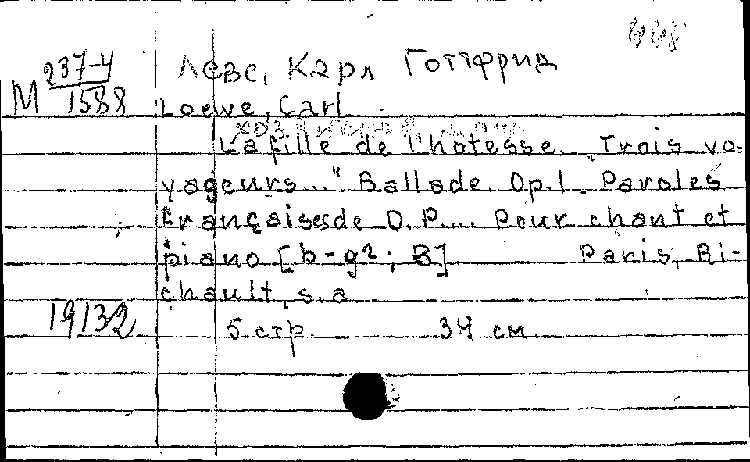 М 237-4/1588
Левe, Карл Готтфрид
Loewe, Carl.
La fille de l'hotesse. „Trois vo-
yageurs..." Ballade. Op.1. Paroles
françaises de D.P.... Pour chant et
piano [b-g²; B] Paris, Ri-
chault, s.a.
19132
5 стр. 34 см.